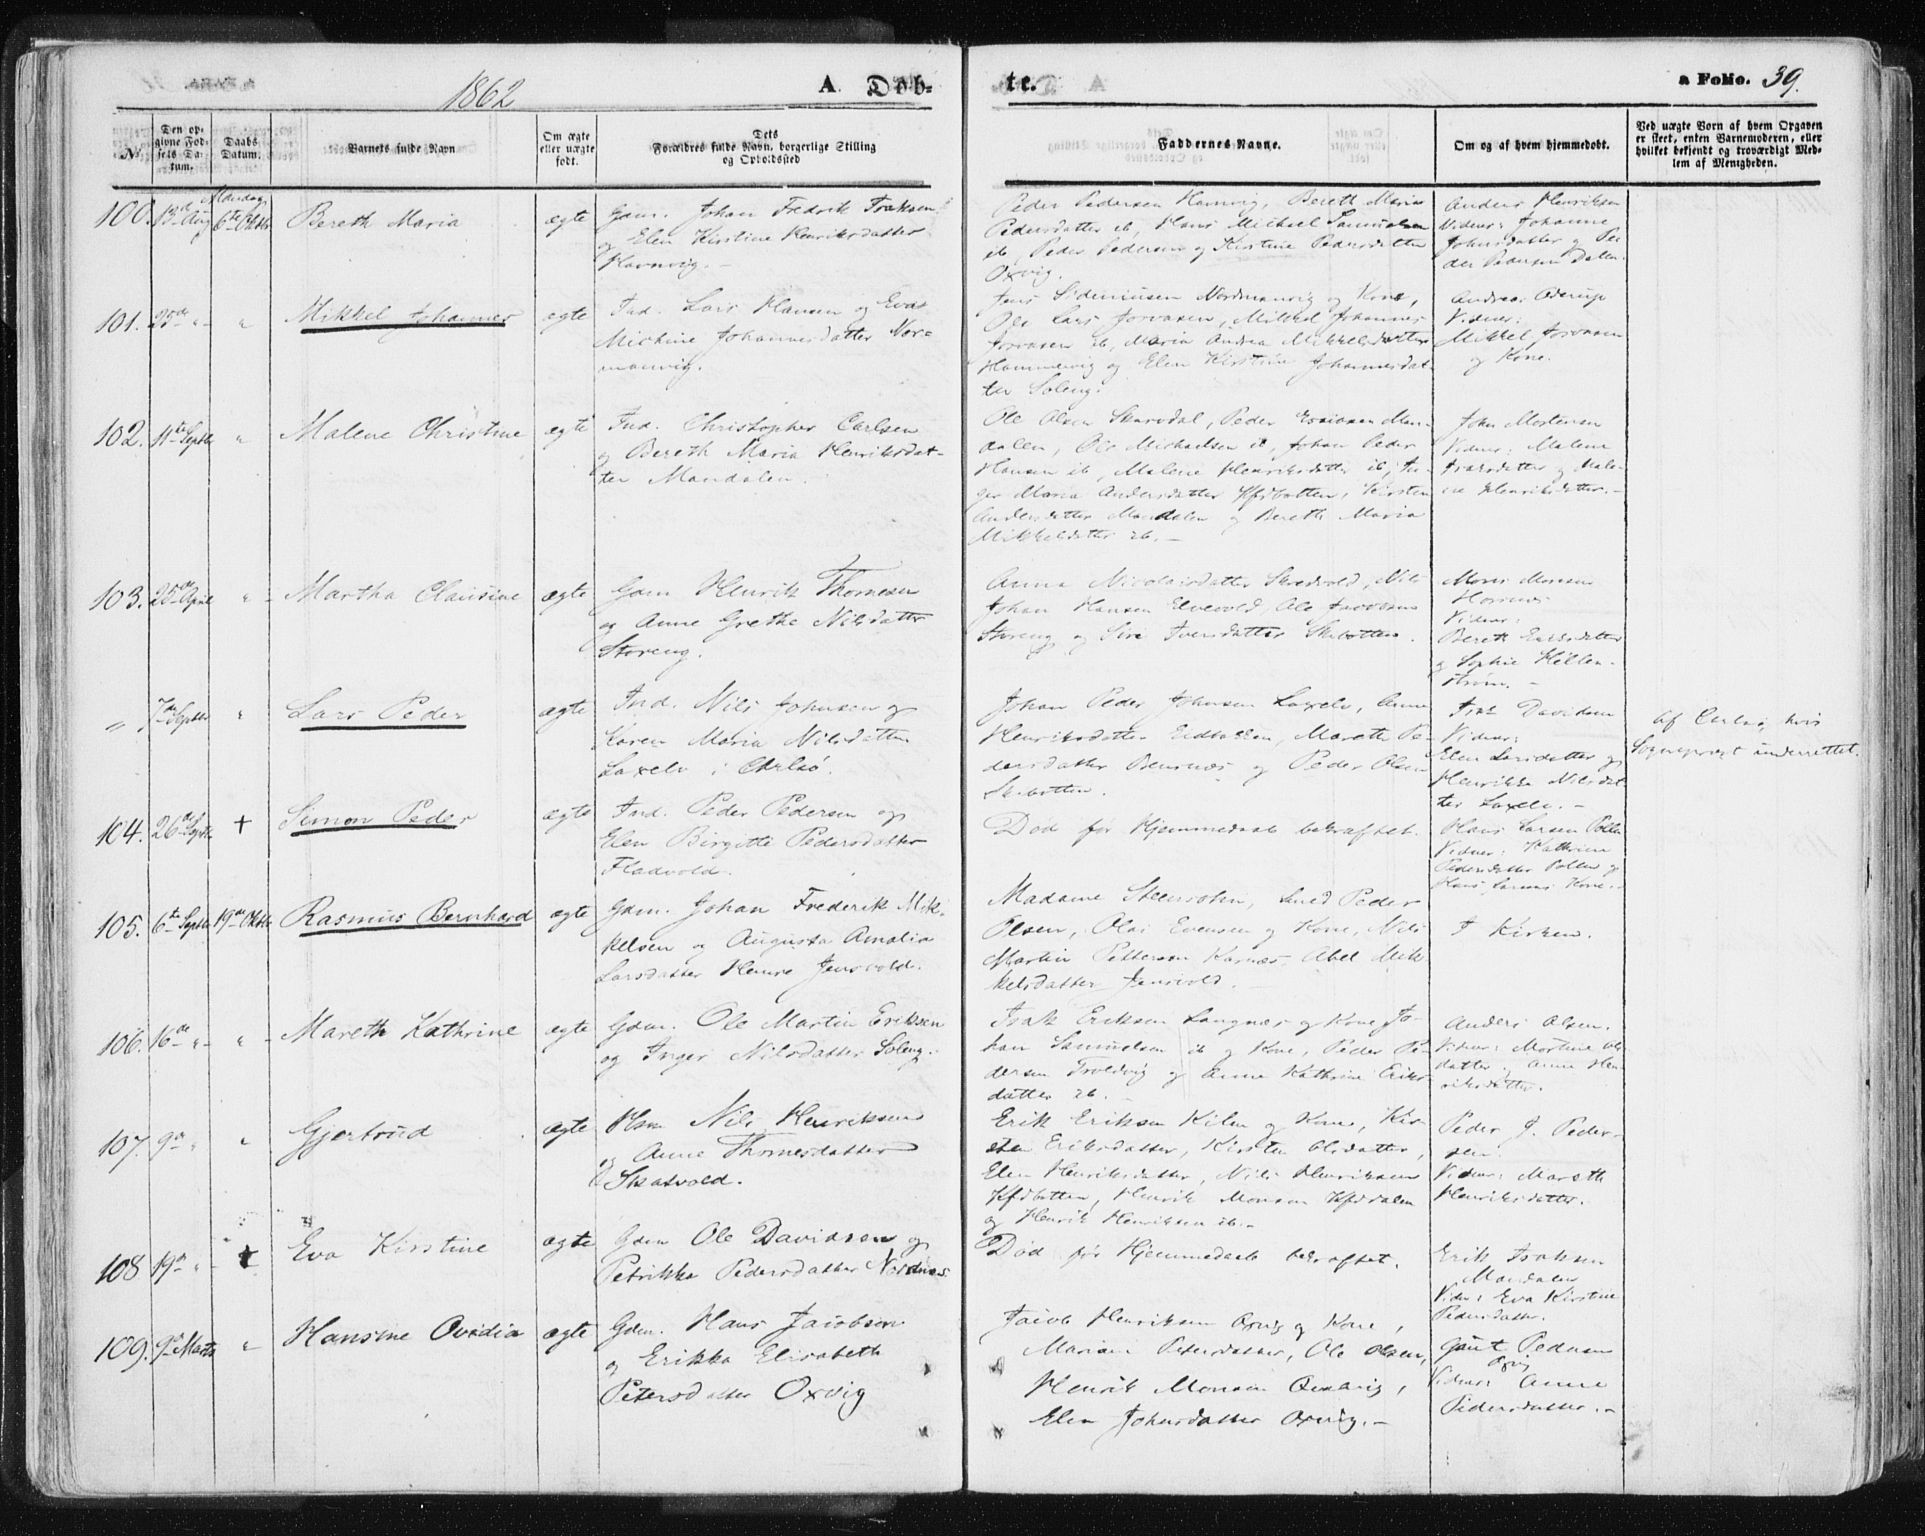 1862
A. Døb-
te.
a Folio. 39.
No.
Den op-
givne Fød-
sels Da-
tum.
Daabs
Datum.
Barnets fulde Navn
Om ægte
eller uægte
født.
Dets
Forældres fulde Navn, borgerlige Stilling
og Opholdssted
Faddernes Navne.
Om og af hvem hjemmedøbt.
Ved uægte Børn af hvem Opgaven
er skeet, enten Barnemoderen, eller
hvilket bekjendt og troværdigt Med-
lem af Menigheden.
100. 13de Aug Mandag 6te Oktbr
Bereth Maria
ægte
Gdm. Johan Fredrik Isaksen
og Elen Kirstine Henriksdatter
Havnvig.
Peder Pedersen Havnvig, Bereth Maria
Pedersdatter ib, Hans Michael Samuelsen
ib, Peder Pedersen og Kirstine Pedersdatter
Oxvig.
Anders Henriksen
Vidner: Johanne
Johnsdatter og Pe-
der Pedersen Dalen.
101. 25de " "
Mikkel Johannes
ægte
Ind. Lars Hansen og Eva
Michine Johannesdatter Nor-
manvig.
Jens Sideniusen Nordmanvig og Kone,
Ole Lars Josvasen, Mikkel Johannes
Josvasen ib, Maria Andrea Mikkelsdatter
Hammervig og Elen Kirstine Johannesdat-
ter Soleng.
Andreas Oderup
Vidner:
Mikkel Josvasen
og Kone.
102. 11te Septbr "
Malene Christine
ægte
Ind. Christopher Carlsen
og Bereth Maria Henriksdat-
ter Mandalen.
Ole Olsen Skarvdal, Peder Esaiasen Man-
dalen, Ole Michaelsen ib, Johan Peder
Hansen ib, Malene Henriksdatter ib, In-
ger Maria Andersdatter Kjfdbotten, Kirsten
Andersdatter Mandalen og Bereth Maria
Mikkelsdatter ib.
John Mortensen
Vidner: Malene
Isaksdatter og Male-
ne Henriksdatter.
103. 25de April "
Martha Clausine
ægte
Gdm Henrik Thomesen
og Anne Grethe Nilsdatter
Storeng.
Anna Nicolaisdatter Skredvold, Nils
Johan Hansen Elvevold, Ole Isaksen
Storeng og Siri Iversdatter Skibotten.
Mons Monsen
Horsnes
Vidner:
Bereth Eriksdatter
og Sophie Hellen-
strøm.
" 7de Septbr "
Lars Peder
ægte
Ind. Nils Johnsen og
Karen Maria Nilsdatter
Laxelv i Carlsø.
Johan Peder Johnsen Laxelv, Anne
Henriksdatter Eidbakken, Mareth Pe-
dersdatter Odernæs og Peder Olsen
Skibotten.
Isak Davidsen
Vidner:
Elen Larsdatter og
Henrikka Nilsdat-
ter Laxelv.
Af Carlsø, hvis
Sogneprest underrettet.
104. 26de Septbr +
Simon Peder
ægte
Ind. Peder Pedersen og
Elen Birgitte Pedersdatter
Fladvold.
Død før Hjemmedaab bekræftet.
Hans Larsen Pollen
Vidner: Kathrine
Pedersdatter Pollen og
Hans Larsens Kone.
105. 6te Septbr 19de Oktbr
Rasmus Bernhard
ægte
Gdm. Johan Frederik Mik-
kelsen og Augusta Amalia
Larsdatter Henne Jensvold.
Madame Steensohn, Lned Peder
Olsen, Olai Evensen og Kone, Nils
Martin Pettersen Karnæs, Abel Mik-
kelsdatter Jensvold.
I Kirken.
106. 16de " "
Mareth Kathrine
ægte
Gdm. Ole Martin Eriksen
og Inger Nilsdatter Soleng.
Isak Eriksen Langnæs og Kone, Jo-
han Samuelsen ib og Kone, Peder Pe-
dersen Troldvig og Anne Kathrine Eriks-
datter ib.
Anders Olsen.
Vidner: Martine Ols-
datter, Anne Hen-
riksdatter.
107. 9de " "
Gjertrud
ægte
Hsm Nils Henriksen
og Anne Thomesdatter
Skatvold.
Erik Eriksen Kilen og Kone, Kir-
sten Eriksdatter, Kirsten Olsdatter,
Elen Henriksdatter, Nils Henriksen
Kjfdbotten, Henrik Monsen Kjfddalen
og Henrik Henriksen ib.
Peder J. Peder-
sen.
Vidner: Mareth
Henriksdatter.
108 19de " +
Eva Kirstine
ægte
Gdm Ole Davidsen og
Petrikka Pedersdatter Nordnæs
Død før Hjemmedaab bekræftet.
Erik Isaksen
Mandalen
Vidn: Eva Kirstine
Pedersdatter.
109. 9de Marts "
Hansine Ovidia
ægte
Gdm. Hans Jacobsen
og Erikka Elisabeth
Petersdatter Oxvig
Jacob Henriksen Oxvig og Kone,
Marian Petersdatter, Ole Olsen,
Henrik Monsen Oxvig,
Elen Johnsdatter Oxvig.
Gaut Pedersen
Oxvig
Vidner: Anne
Pedersdatter.